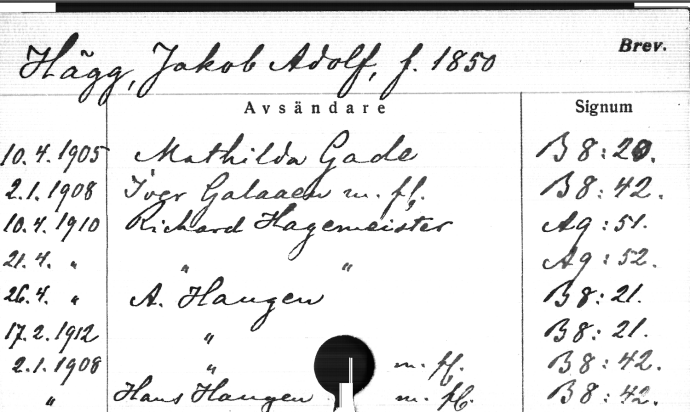 Hägg, Jakob Adolf, f. 1850 Brev.
Avsändare Signum
10.4.1905 Mathilda Gade B 8:20.
2.1.1908 Galaaen m. fl. B 8:42.
10.4.1910 Richard Hagemeister Ag:51.
21.4. " " " Ag:52.
26.4. " A. Haugen B 8:21.
17.2.1912 " B 8:21.
2.1.1908 " m. fl. B 8:42.
" Hans Haugen m. fl. B 8:42.